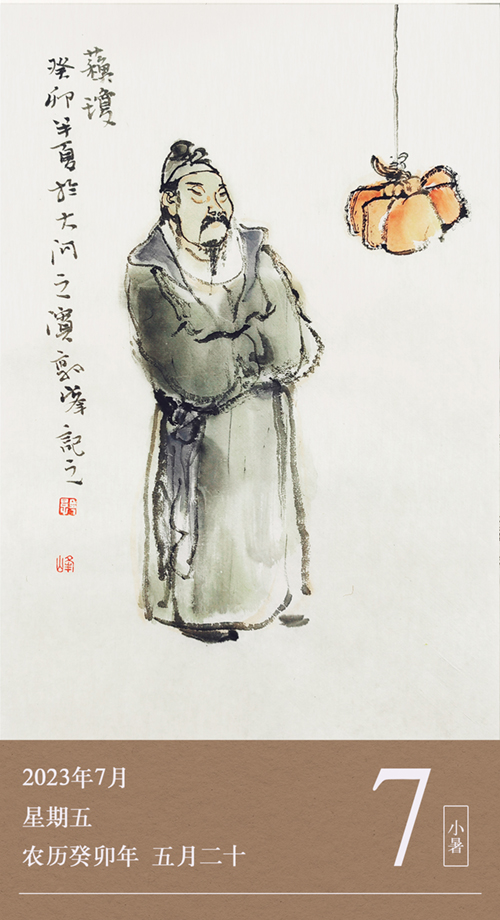 蘇瓊
癸卯半夏於大河之濱郭峯記之
峰
2023年7月
星期五
农历癸卯年 五月二十
7
小暑